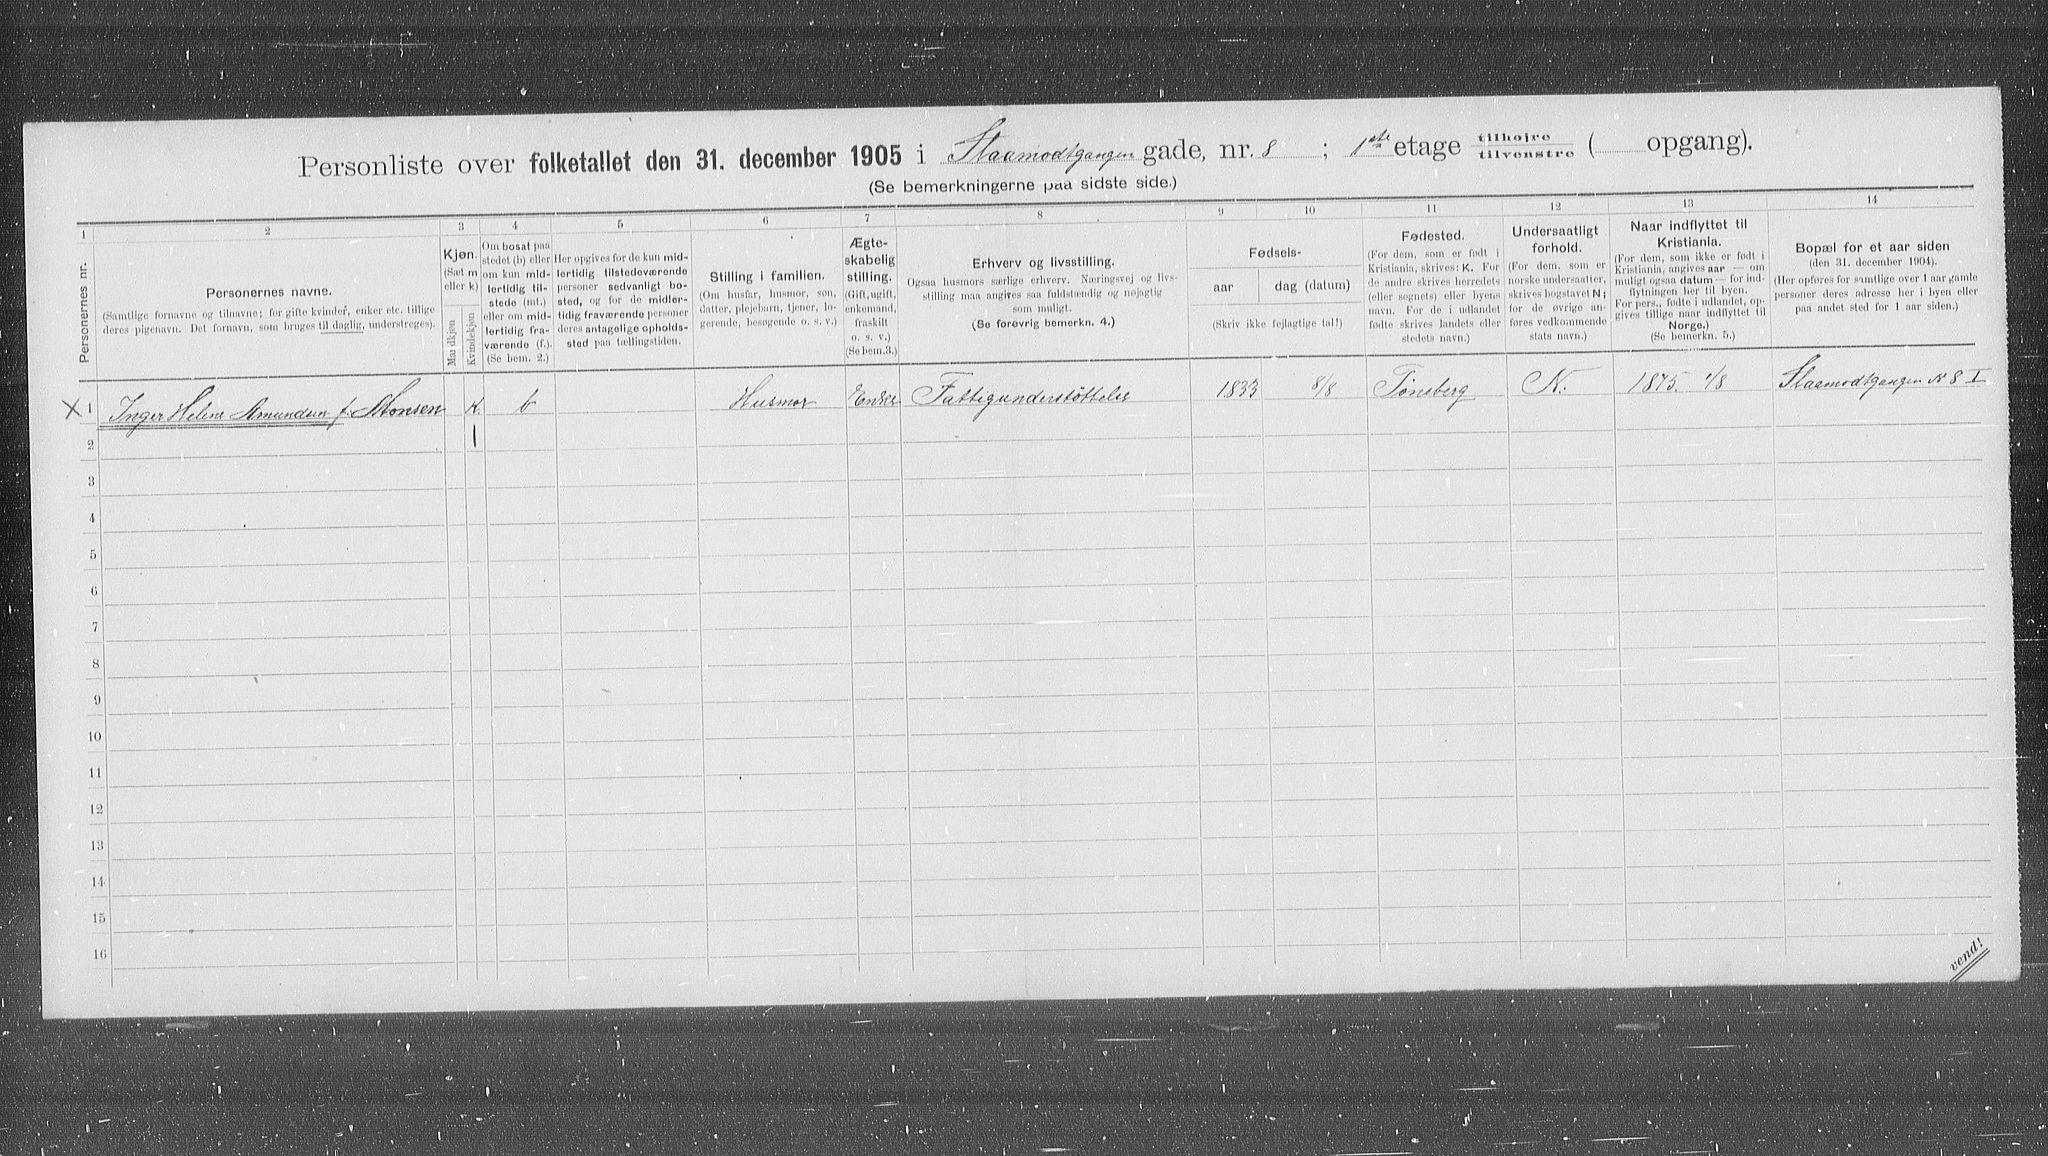 Personliste over folketallet den 31. december 1905 i Staamodtgangen gade, nr. 8 ; 1ste etage tilhøire tilvenstre ( opgang).
(Se bemerkningerne paa sidste side.)
1 2 3 4 5 6 7 8 9 10 11 12 13 14
Personernes nr.
Personernes navne.
(Samtlige fornavne og tilnavne; for gifte kvinder, enker etc. tillige
deres pigenavn. Det fornavn, som bruges til daglig, understreges).
Kjøn.
(Sæt m
eller k)
Mandkjøn
Kvindekjøn
Om bosat paa
stedet (b) eller
om kun mid-
lertidig til-
stede (mt.)
eller om mid-
lertidig fra-
værende (f.).
(Se bem. 2.)
Her opgives for de kun mid-
lertidig tilstedeværende
personer sedvanligt bo-
sted, og for de midler-
tidig fraværende personer
deres antagelige opholds-
sted paa tællingstiden.
Stilling i familien.
(Om husfar, husmor, søn,
datter, plejebarn, tjener, lo-
gerende, besøgende o. s. v.)
Ægte-
skabelig
stilling.
(Gift, ugift,
enkemand,
fraskilt
o. s. v.)
(Se bem. 3.)
Erhverv og livsstilling.
Ogsaa husmors særlige erhverv. Næringsvej og livs-
stilling maa angives saa fuldstændig og nøjagtig
som muligt.
(Se forøvrig bemerkn. 4.)
Fødsels-
aar
dag (datum)
(Skriv ikke fejlagtige tal!)
Fødested.
(For dem, som er født i
Kristiania, skrives: K. For
de andre skrives herredets
(eller sognets) eller byens
navn. For de i udlandet
fødte skrives landets eller
stedets navn.)
Undersaatligt
forhold.
(For dem, som er
norske undersaatter,
skrives bogstavet N;
for de øvrige an-
føres vedkommende
stats navn.)
Naar indflyttet til
Kristiania.
(For dem, som ikke er født i
Kristiania, angives aar — om
muligt ogsaa datum — for ind-
flytningen her til byen.
For pers., fødte i udlandet, op-
gives tillige naar indflyttet til
Norge.)
(Se bemerkn. 5.)
Bopæl for et aar siden
(den 31. december 1904).
(Her opføres for samtlige over 1 aar gamle
personer deres adresse her i byen eller
paa andet sted for 1 aar siden.)
X 1 Inger Heline Amundsen f. Monsen k. b Husmor Enke Fattigunderstøttelse 1833 8/8 Tønsberg N. 1875. 1/8 Staamodtgangen N 8 I
2 1
3
4
5
6
7
8
9
10
11
12
13
14
15
16
vend!